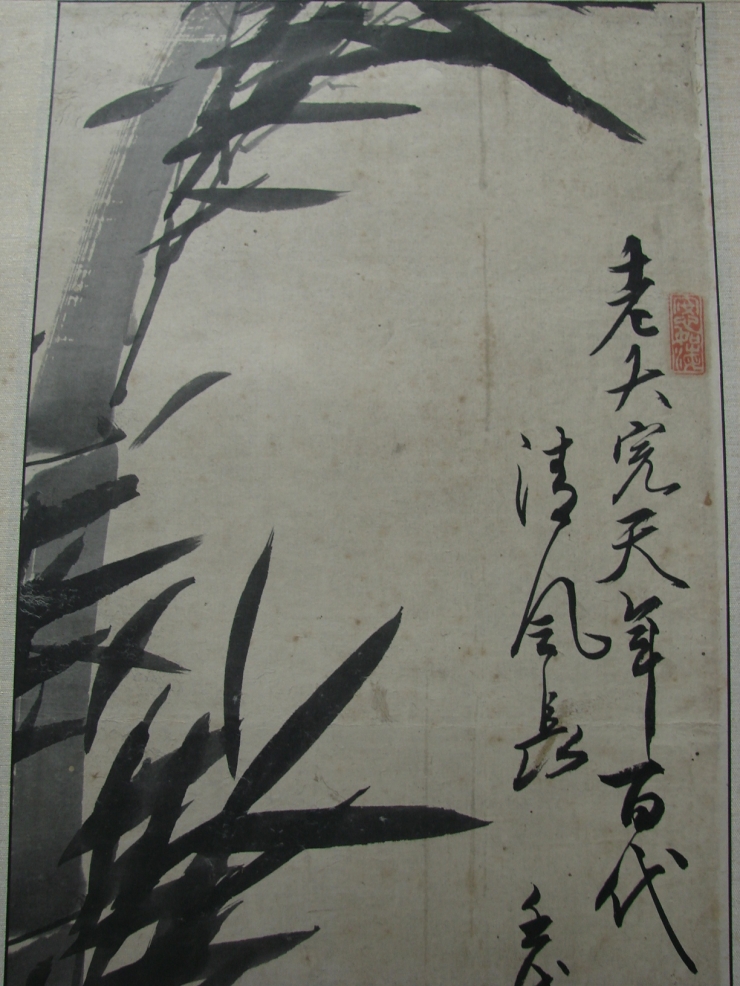 老大完天年百代
清風長